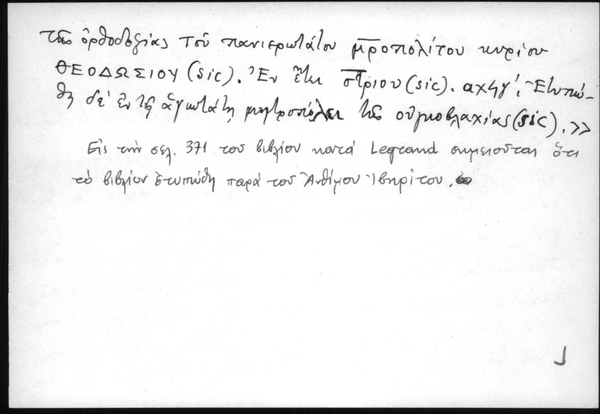 τῆς ὀρθοδοξίας τοῦ πανιερωτάτου μ̅ροπολίτου κυρίου
ΘΕΟΔΩΣΙΟΥ (sic). Ἐν ἔτει σ̅τριου (sic). αχϟγ΄. Ἐτυπώ-
θη δὲ ἐν τῇ ἁγιωτάτῃ μητροπόλει τῆς οὑγκοβλαχίας (sic).>>
Εἰς τὴν σελ. 371 τοῦ βιβλίου κατὰ Legrand σημειοῦται ὅτι
τὸ βιβλίον ἐτυπώθη παρὰ τοῦ Ἀνθίμου Ἰβηρίτου.